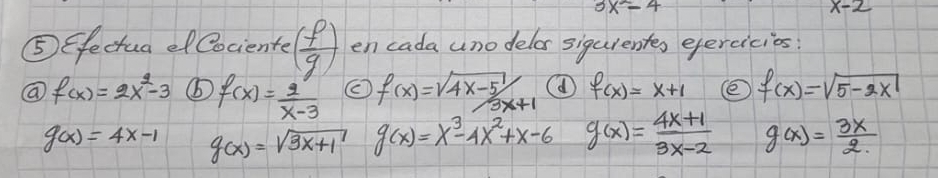 3x²-4 x-2
⑤ Efectua el Cociente (f/g) en cada uno delos siguientes ejercicios:
ⓐ f(x)= 2x²-3 ⓑ f(x)= 2/(x-3) ⓒ f(x)=√(4x-5)/(3x+1) ⓓ f(x)= x+1 ⓔ f(x)=√(5-2x)
g(x)= 4x-1 g(x)= √(3x+1) g(x)= x³-4x²+x-6 g(x)= (4x+1)/(3x-2) g(x)= 3x/2.